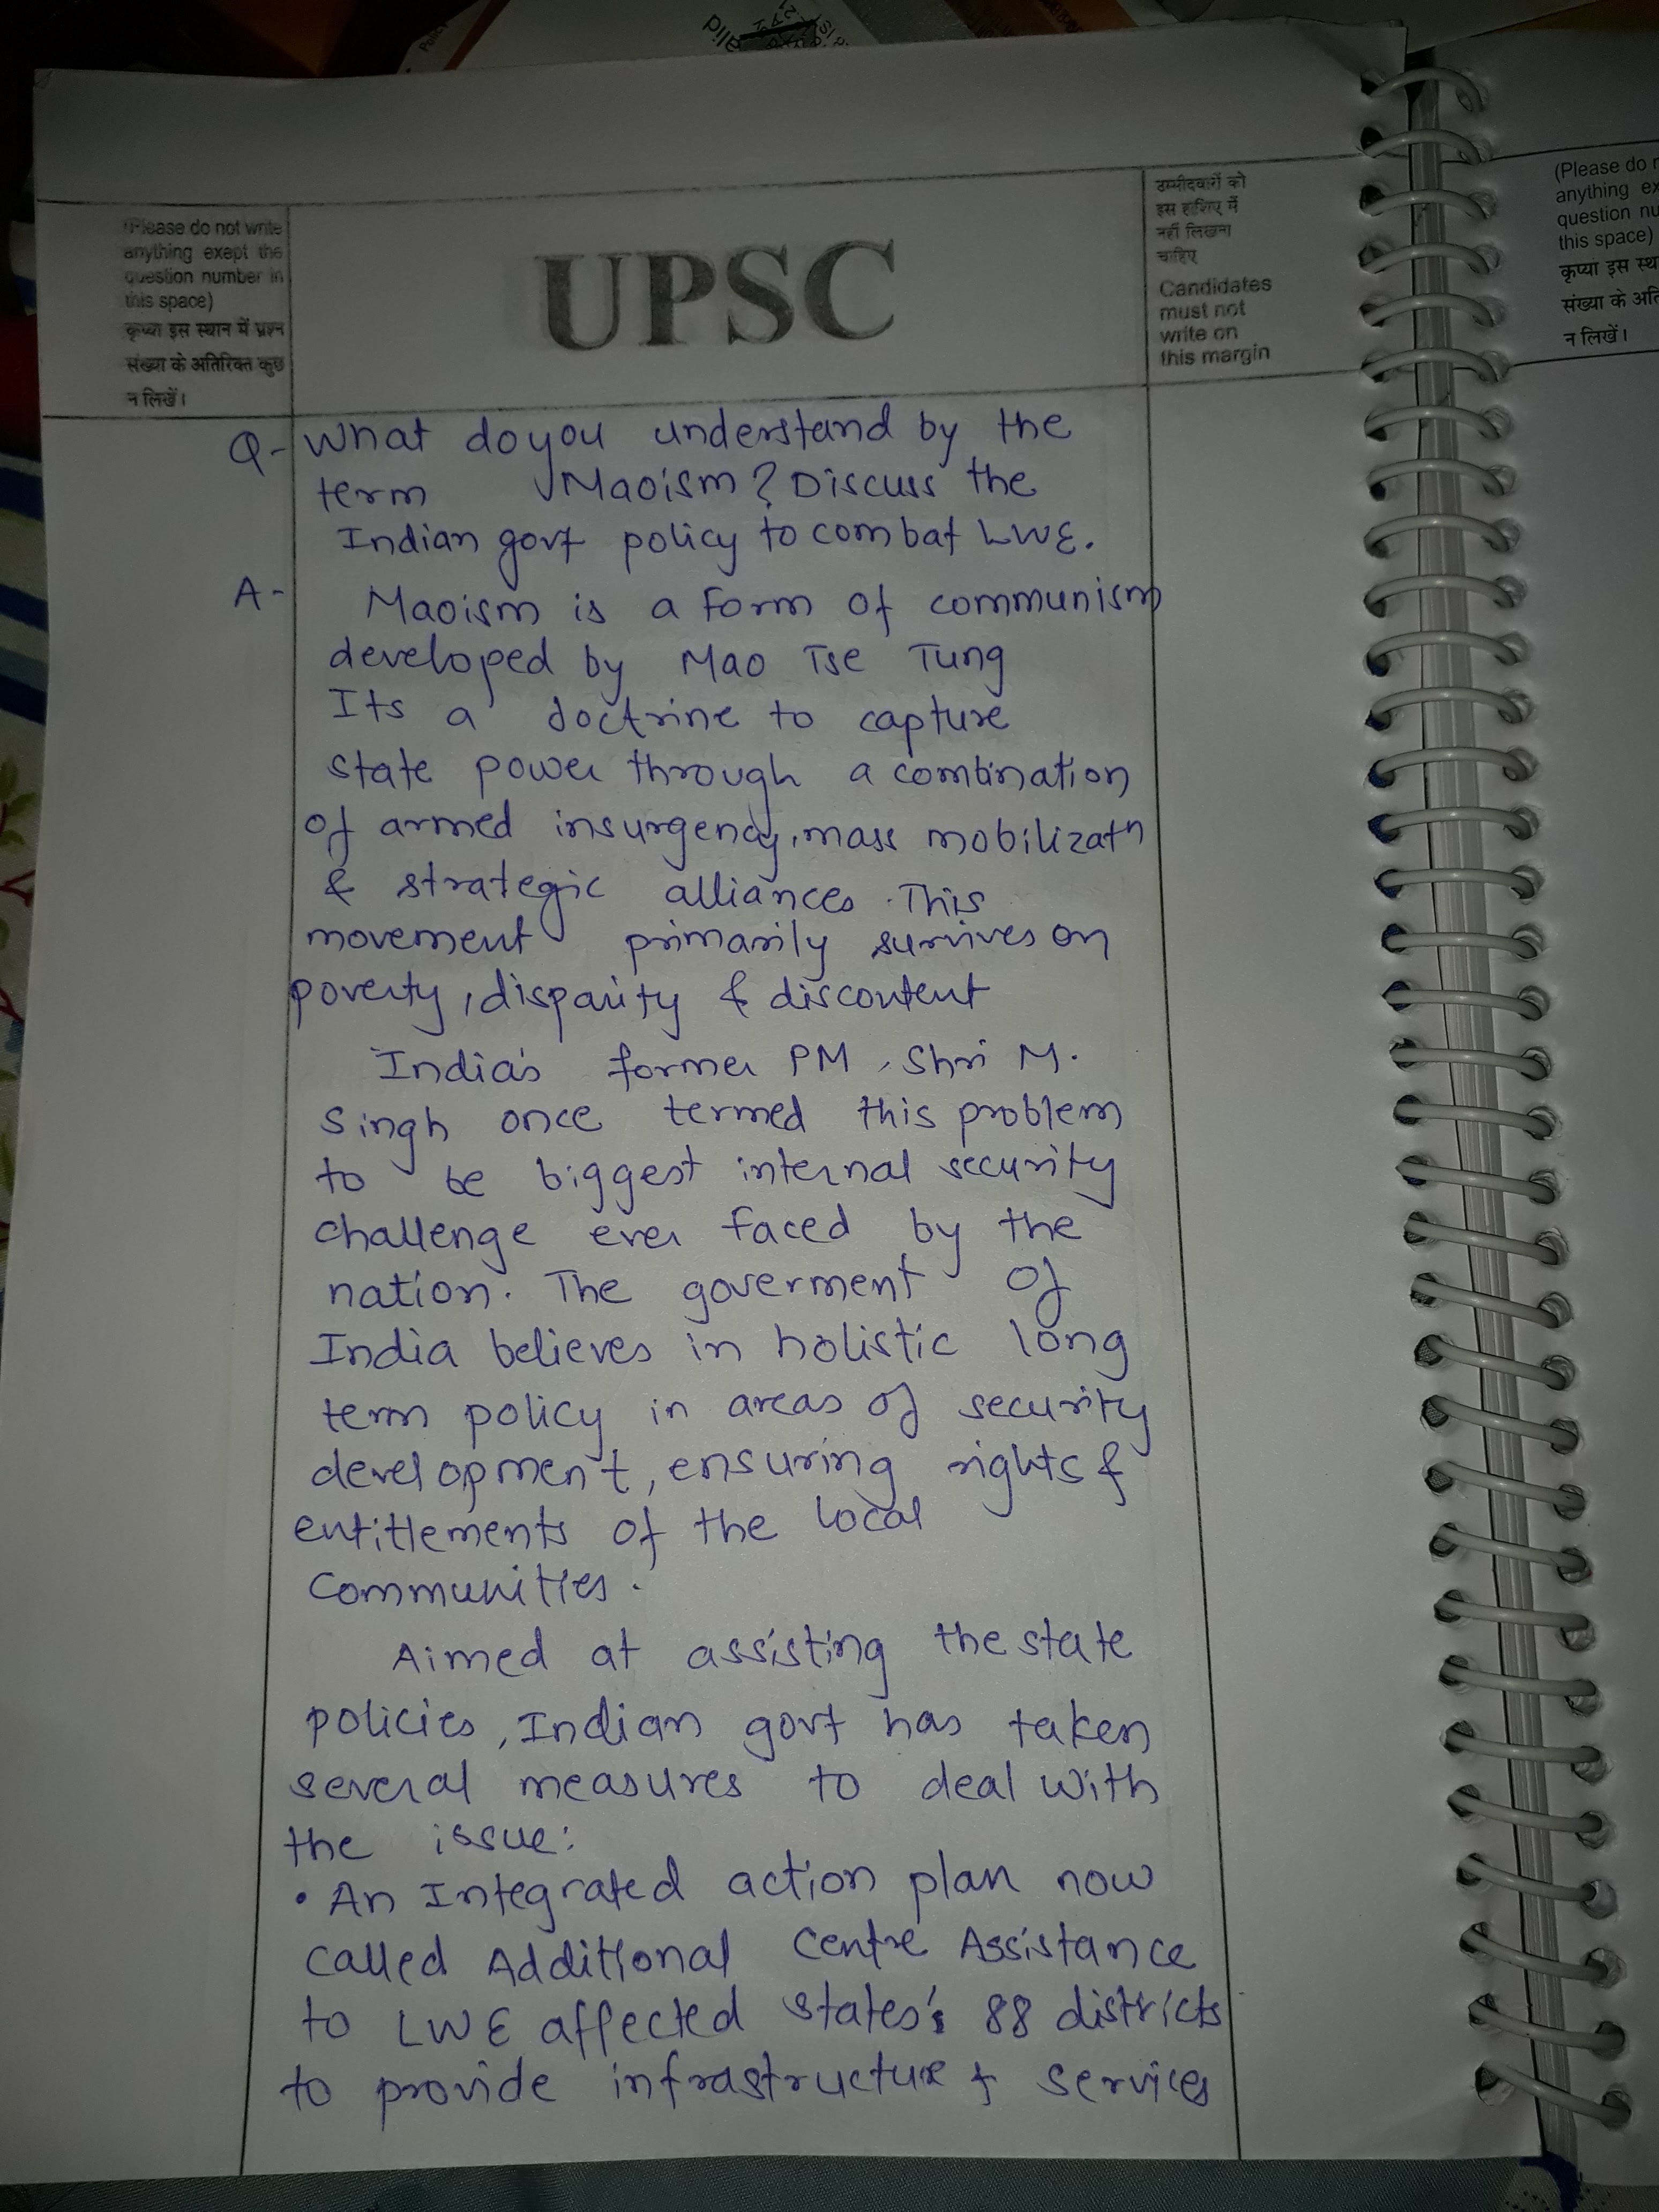 (Please do not write
anything exept the
question number in
this space)
कृप्या इस स्थान में प्रश्न
संख्या के अतिरिक्त कुछ
न लिखें।
UPSC
उम्मीदवारों को
इस हाशिए में
नहीं लिखना
चाहिए
Candidates
must not
write on
this margin
Q- What do you understand by the
term Maoism? Discuss the
Indian govt policy to combat LWE.
A- Maoism is a form of communism
developed by Mao Tse Tung
Its a doctrine to capture
state power through a combination
of armed insurgency, mass mobilizatn
& strategic alliances. This
movement primarily survives on
poverty, disparity & discontent
India's former PM, Shri M.
Singh once termed this problem
to be biggest internal security
challenge ever faced by the
nation. The goverment of
India believes in holistic long
term policy in areas of security
development, ensuring rights &
entitlements of the local
communities.
Aimed at assisting the state
policies, Indian govt has taken
several measures to deal with
the issue:
• An Integrated action plan now
called Additional Centre Assistance
to LWE affected states's 88 districts
to provide infrastructure & services
(Please do
anything
question
this space)
कृप्या इस
संख्या के
न लिखें।